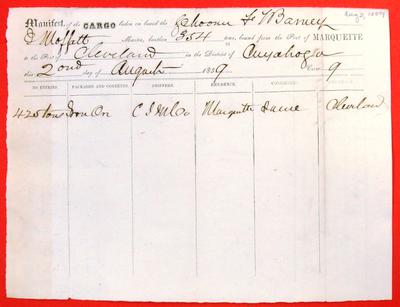 Aug 2, 1859
Manifest, of the CARGO laden on board the Schooner F T Barney
D Moffatt Master, burthen 354 tons, bound from the Port of MARQUETTE
to the Port of Cleveland in the District of Cuyahoga
this 2ond day of August 1859 9
NO. ENTRIES. PACKAGES AND CONTENTS. SHIPPERS. RESIDENCE. CONSIGNEES.
425 tons Iron Ore C I M Co Marquette Same Cleveland